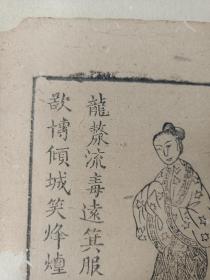 龍漦流毒遠箕服
欲博傾城笑烽煙